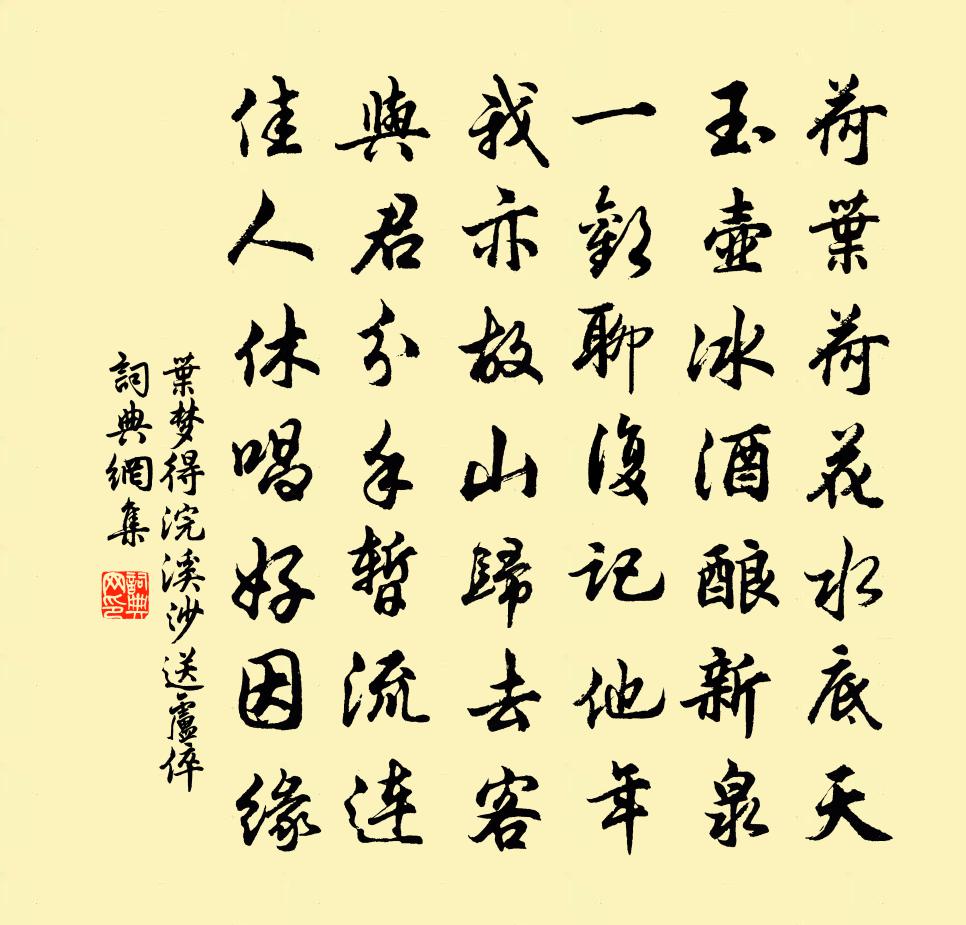 荷葉荷花水底天
玉壺冰酒酿新泉
一歡聊復記他年
我亦故山歸去客
與君分手暫流連
佳人休唱好因緣
葉梦得浣溪沙送盧倅
詞典網集
詞典网印